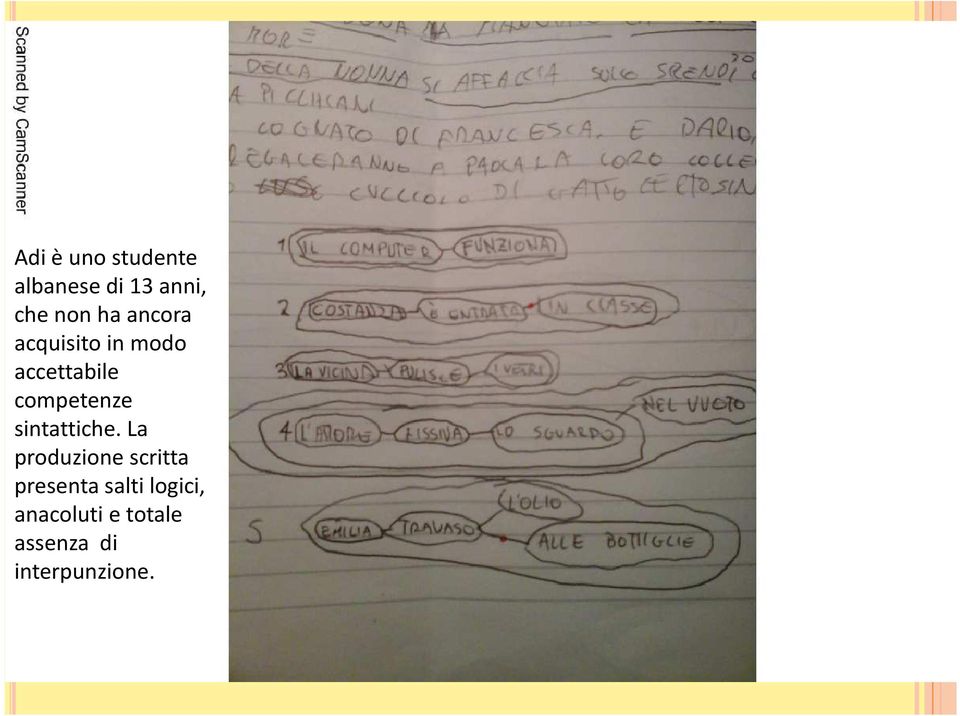 Scanned by CamScanner
Adi è uno studente
albanese di 13 anni,
che non ha ancora
acquisito in modo
accettabile
competenze
sintattiche. La
produzione scritta
presenta salti logici,
anacoluti e totale
assenza di
interpunzione.
MORE
DELLA NONNA SI AFFACCIA
A PICCLICANI
COGNATO DI FRANCESCA. E DARIO,
REGALERANNO A PAOLA LA LORO COLLE
CUCCIOLO DI GATTO CERTOSIN
1 IL COMPUTER FUNZIONA
2 COSTANZA È ENTRATA IN CLASSE
3 LA VICINA PULISCE I VETRI
NEL VUOTO
4 L'ATTORE FISSAVA LO SGUARDO
L'OLIO
5 EMILIA TRAVASO
ALLE BOTTIGLIE